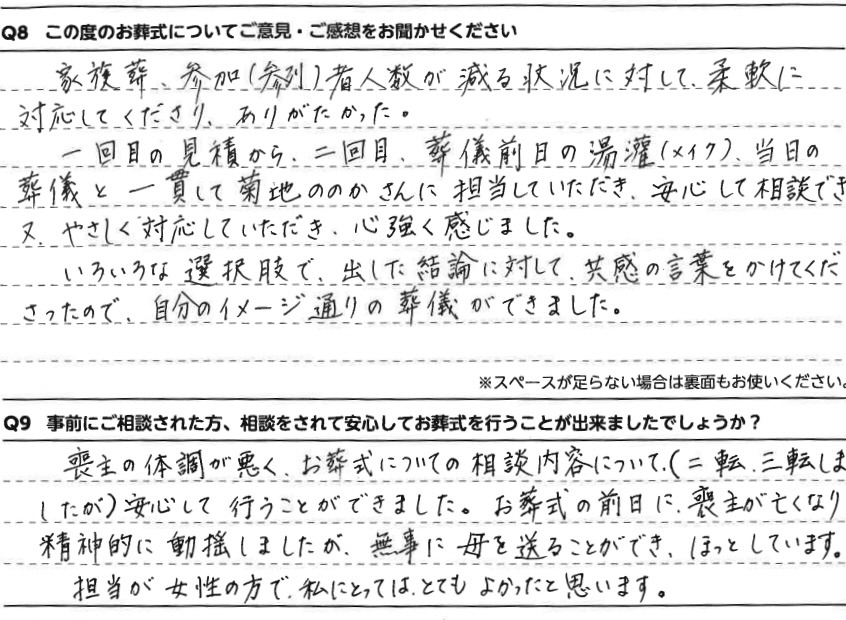 Q8 この度のお葬式についてご意見・ご感想をお聞かせください
家族葬、参加(参列)者人数が減る状況に対して、柔軟に
対応してくださり、ありがたかった。
一回目の見積から、二回目、葬儀前日の湯灌(メイク)、当日の
葬儀と一貫して菊地ののかさんに担当していただき、安心して相談でき
又、やさしく対応していただき、心強く感じました。
いろいろな選択肢で、出した結論に対して、共感の言葉をかけてくだ
さったので、自分のイメージ通りの葬儀ができました。
※スペースが足らない場合は裏面もお使いください。
Q9 事前にご相談された方、相談をされて安心してお葬式を行うことが出来ましたでしょうか?
喪主の体調が悪く、お葬式についての相談内容について、(二転、三転しま
したが)安心して行うことができました。お葬式の前日に、喪主が亡くなり
精神的に動揺しましたが、無事に母を送ることができ、ほっとしています。
担当が女性の方で、私にとっては、とてもよかったと思います。